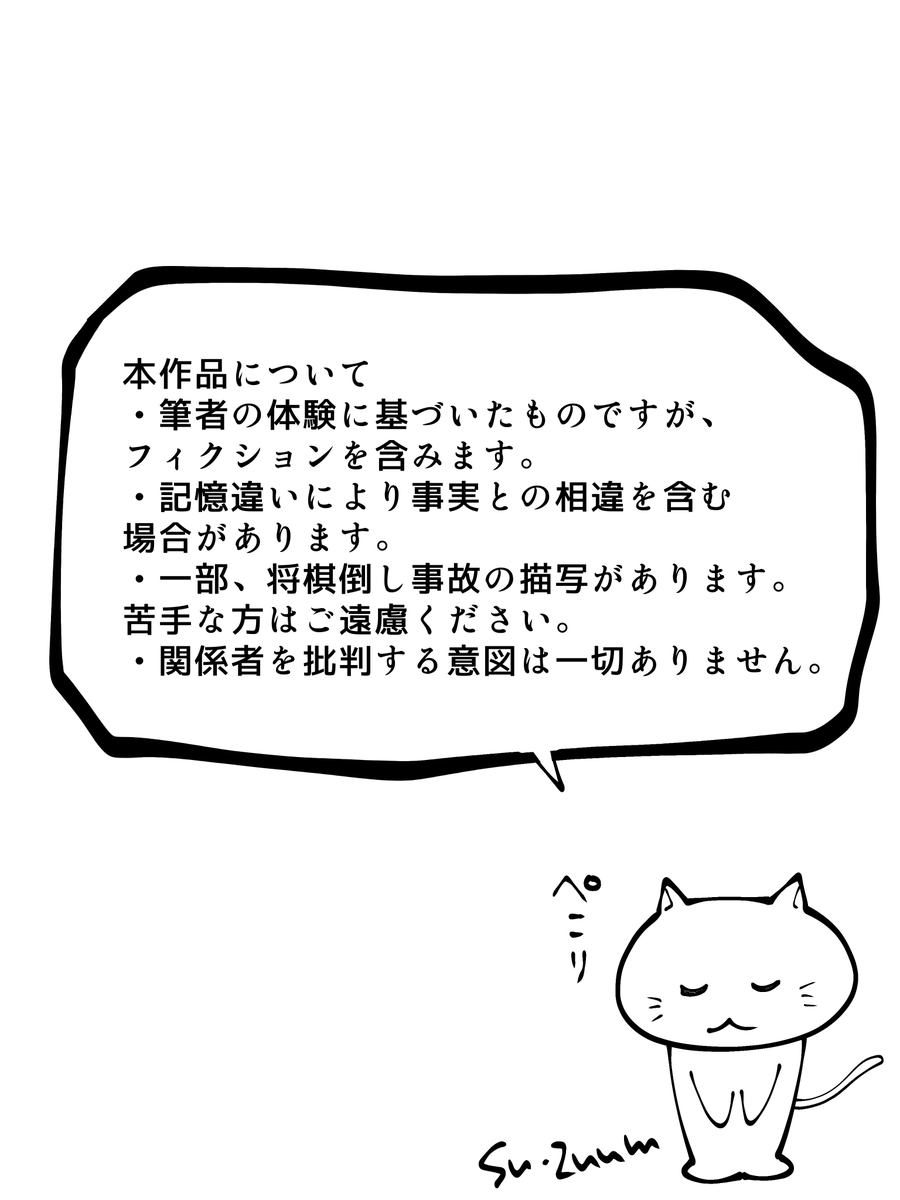 本作品について
・筆者の体験に基づいたものですが、
フィクションを含みます。
・記憶違いにより事実との相違を含む
場合があります。
・一部、将棋倒し事故の描写があります。
苦手な方はご遠慮ください。
・関係者を批判する意図は一切ありません。
ペこり
Su・Zuum